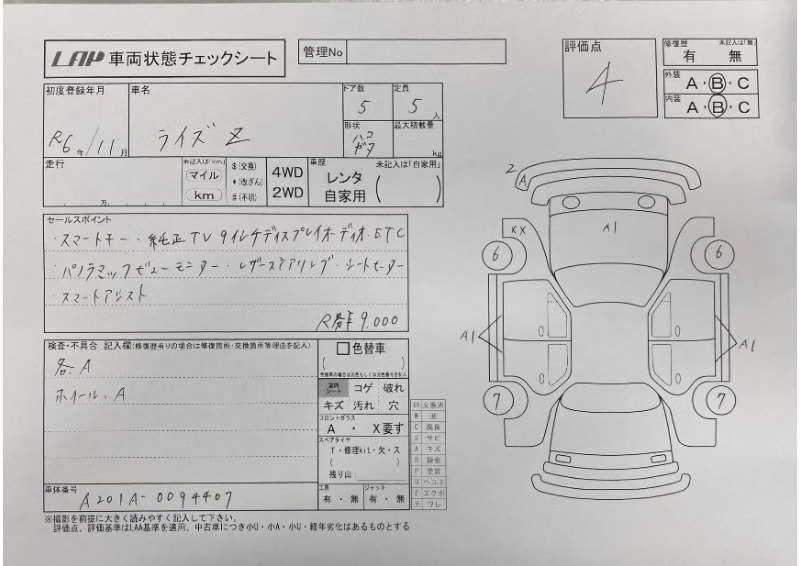 LAP 車両状態チェックシート
管理No
評価点
4
修復歴 未記入は「無」
有 無
外装 A・B・C
内装 A・B・C
初度登録年月
R6年 11月
車名
ライズ Z
ドア数
5
定員
5人
形状
ハコ
最大積載量
kg
走行
万
未記入は(km)
マイル
km
$(交換)
*(改ざん)
#(不明)
4WD
2WD
車歴 未記入は「自家用」
レンタ
自家用 ( )
セールスポイント
・スマートキー・純正TV 9インチディスプレイオーディオ・ETC
・パノラマックビューモニター・レザーステアリング・シートヒーター
スマートアシスト
R券¥9,000
検査・不具合 記入欄(修復歴有りの場合は修復箇所・交換箇所等理由を記入)
各・A
ホイール・A
色替車
( )
室内
シート
コゲ 破れ
キズ 汚れ 穴
フロントガラス
A ・ X要す
スペアタイヤ
T・修理kit・欠・ス
( )
残り山
工具
有・無
ジャッキ
有・無
車体番号
A201A-0094407
※撮影を前提に大きく読みやすく記入して下さい。
評価点、評価基準はLAA基準を適用、中古車につき小U・小A・小U・軽年劣化はあるものとする
2
A
A1
XX
6
6
A1
A1
7
7